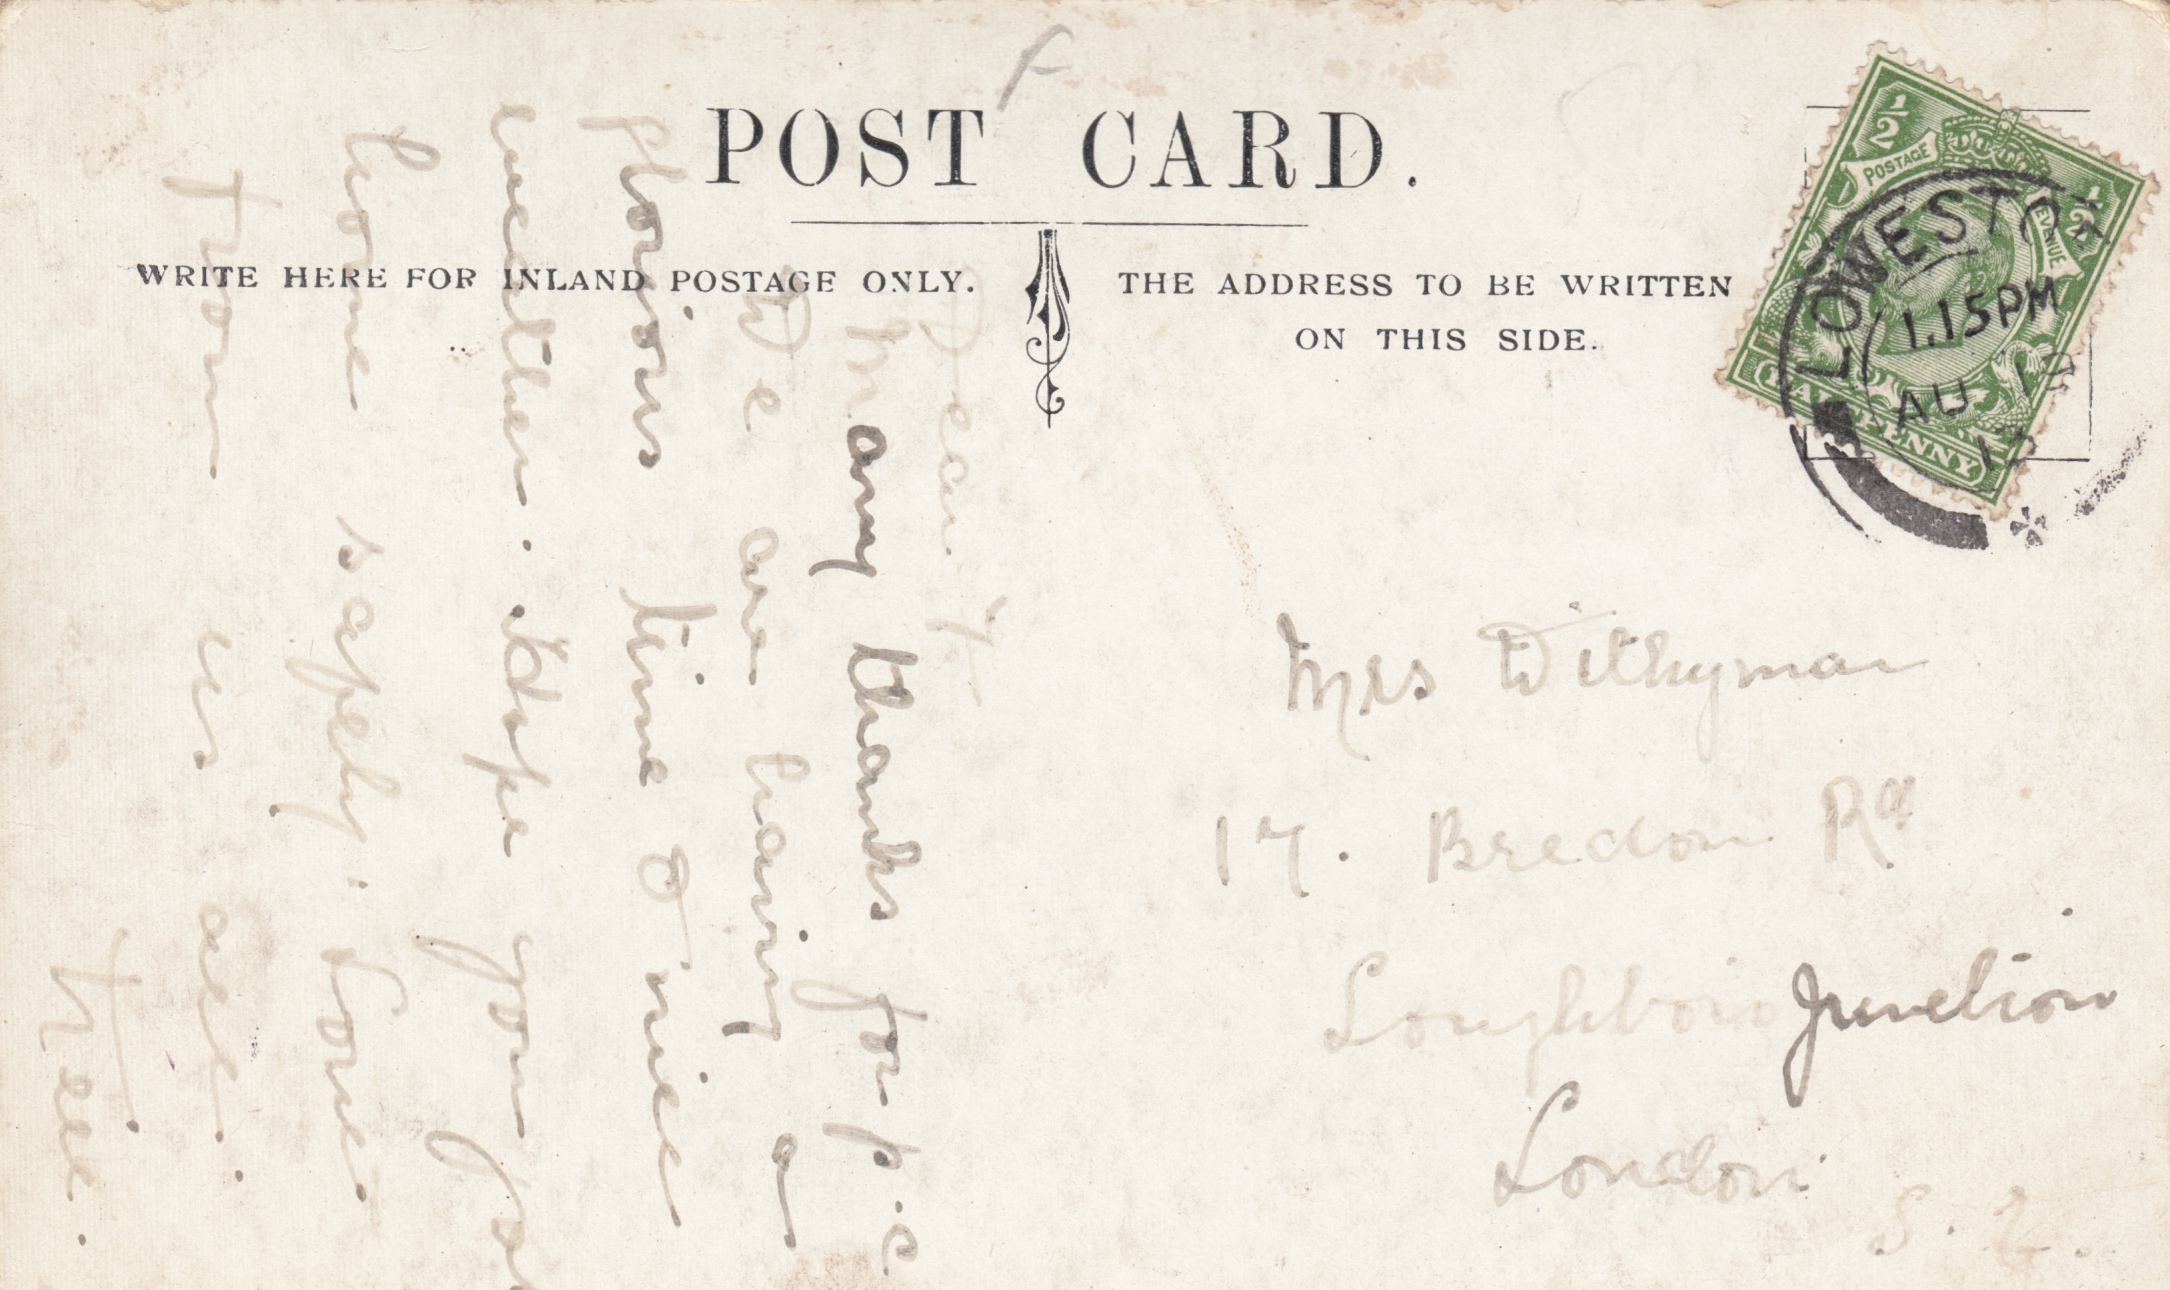 POST CARD.
WRITE HERE FOR INLAND POSTAGE ONLY.
THE ADDRESS TO BE WRITTEN
ON THIS SIDE.
½ ½
POSTAGE REVENUE
HALFPENNY
LOWESTOFT
1.15PM
AU 19
12
Dear
Many thanks for p.c
We are having a
glorious time & nice
weather. Hope you got
home safely. Love
from us all.
Nell.
Mrs Withyman
17. Bredon Rd
Loughboro Junction
London
S.E.